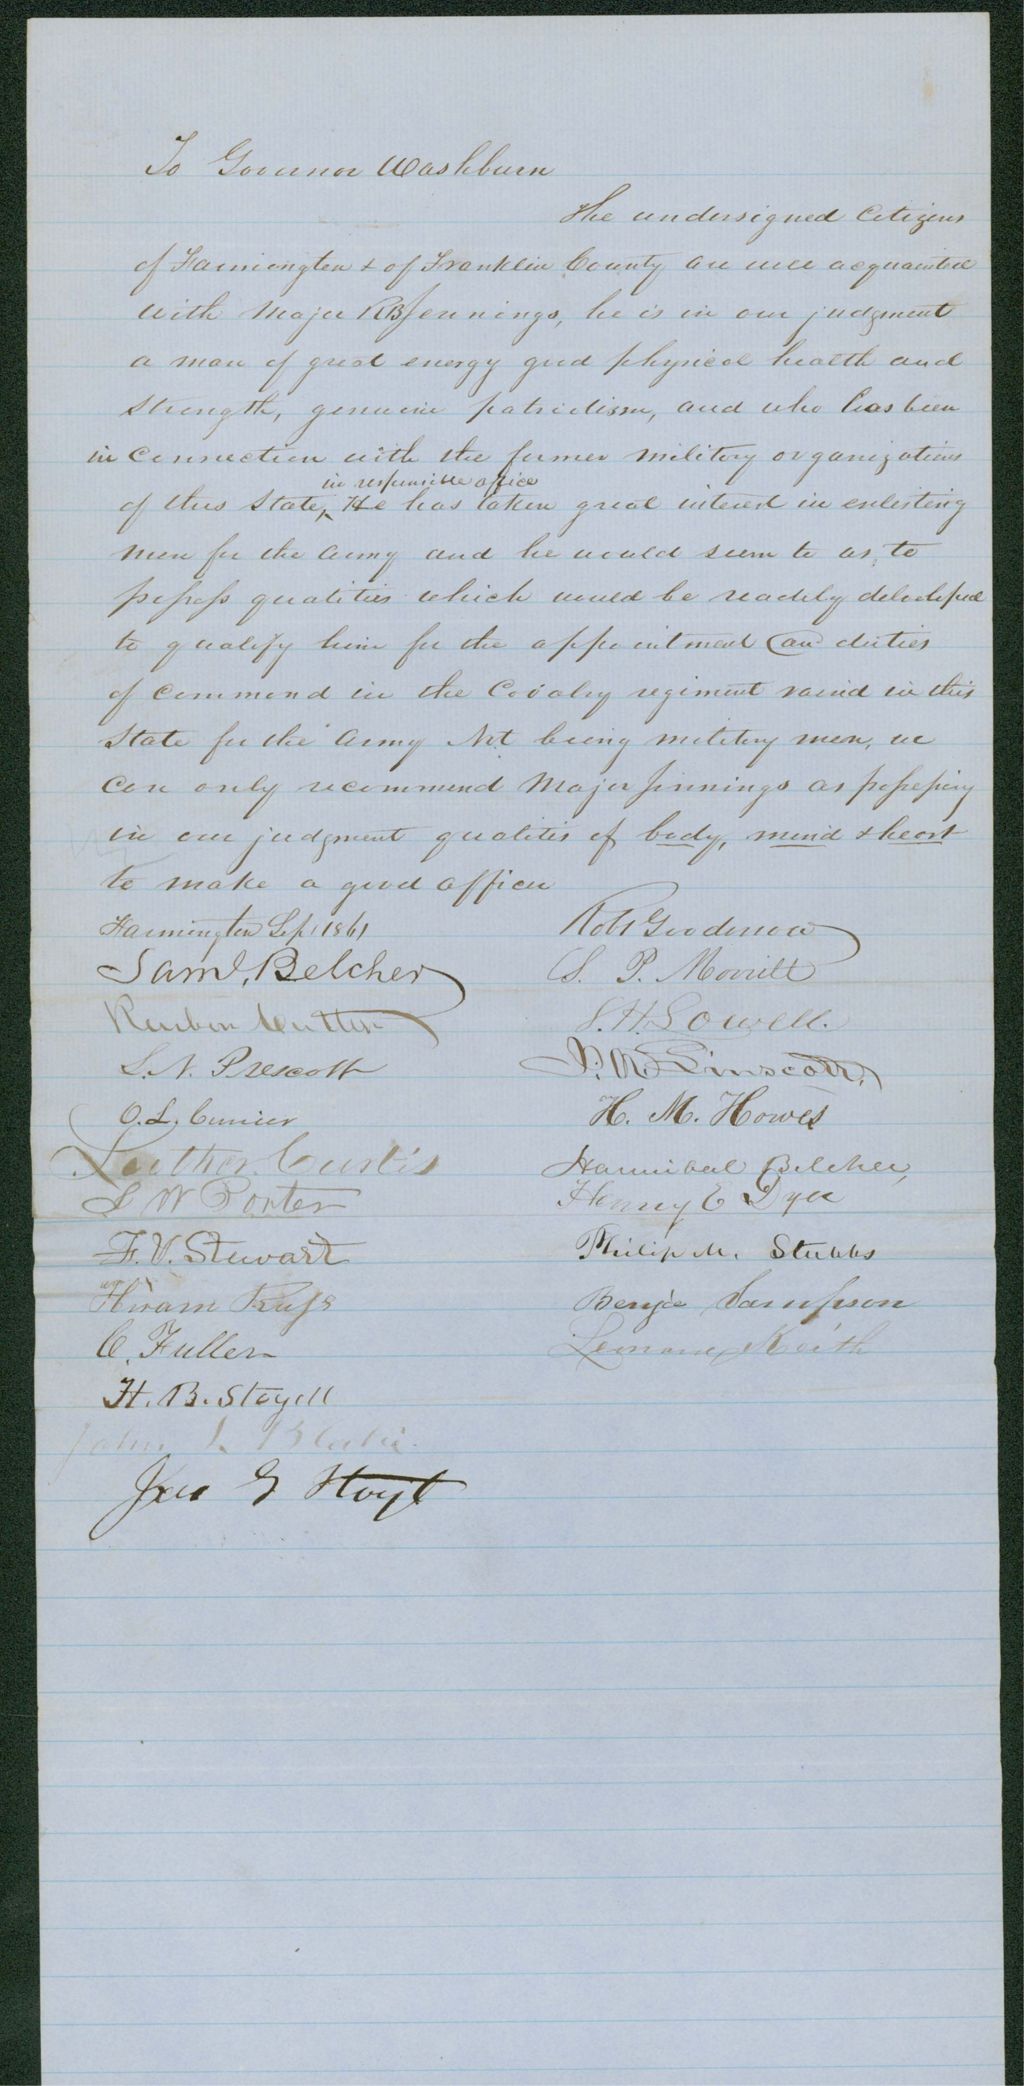 To Governor Washburn
The undersigned Citizens
of Farmington & of Franklin County are well acquainted
with Major R B Jennings, he is in our judgment
a man of great energy good physical health and
strength, genuine patriotism, and who has been
in connection with the former military organizations
in responsible office
of this State, He has taken great interest in enlisting
men for the Army and he would seem to us, to
possess qualities which would be readily developed
to qualify him for the appointment and duties
of command in the Cavalry regiment raised in this
State for the Army Not being military men, we
can only recommend Major Jennings as possessing
in our judgment qualities of body, mind & heart
to make a good officer
Farmington Sept 1861
Robt Goodenow
Saml. Belcher
S. P. Morrill
Reuben Cutler
S. H. Lowell.
L. N. Prescott
Linscott.
O. L. Currier
H. M. Howes
Luther Curtis
Hannibal Belcher,
L W Porter
Henry E Dyer
F. V. Stewart
Philip M. Stubbs
Hiram Russ
Benja Sampson
C. Fuller
Keith
H. B. Stoyell
John L Blake
Geo G Hoyt